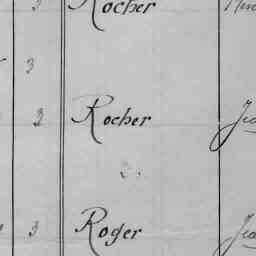 3 Rocher
3
3 Rocher
2.
3 Roger